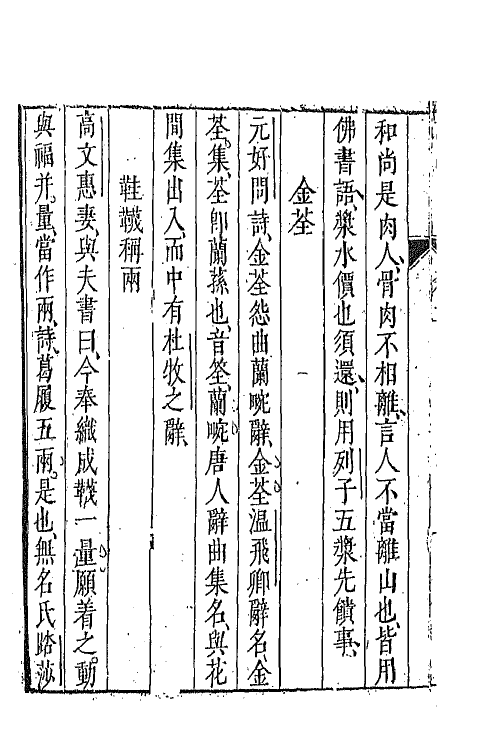 和尚是肉人、骨肉不相離、言人不當離山也、皆用
佛書語、漿水價也須還、則用列子五漿先饋事、
金荃
元好問詩、金荃怨曲蘭畹辭、金荃温飛卿辭名、金
荃集、荃卽蘭蓀也、音筌、蘭畹唐人辭曲集名、與花
間集出入、而中有杜牧之辭、
鞋韈稱兩
高文惠妻、與夫書曰、今奉織成韈一量願着之。動
與福并。量、當作兩、詩、葛屨五兩。是也、無名氏踏莎